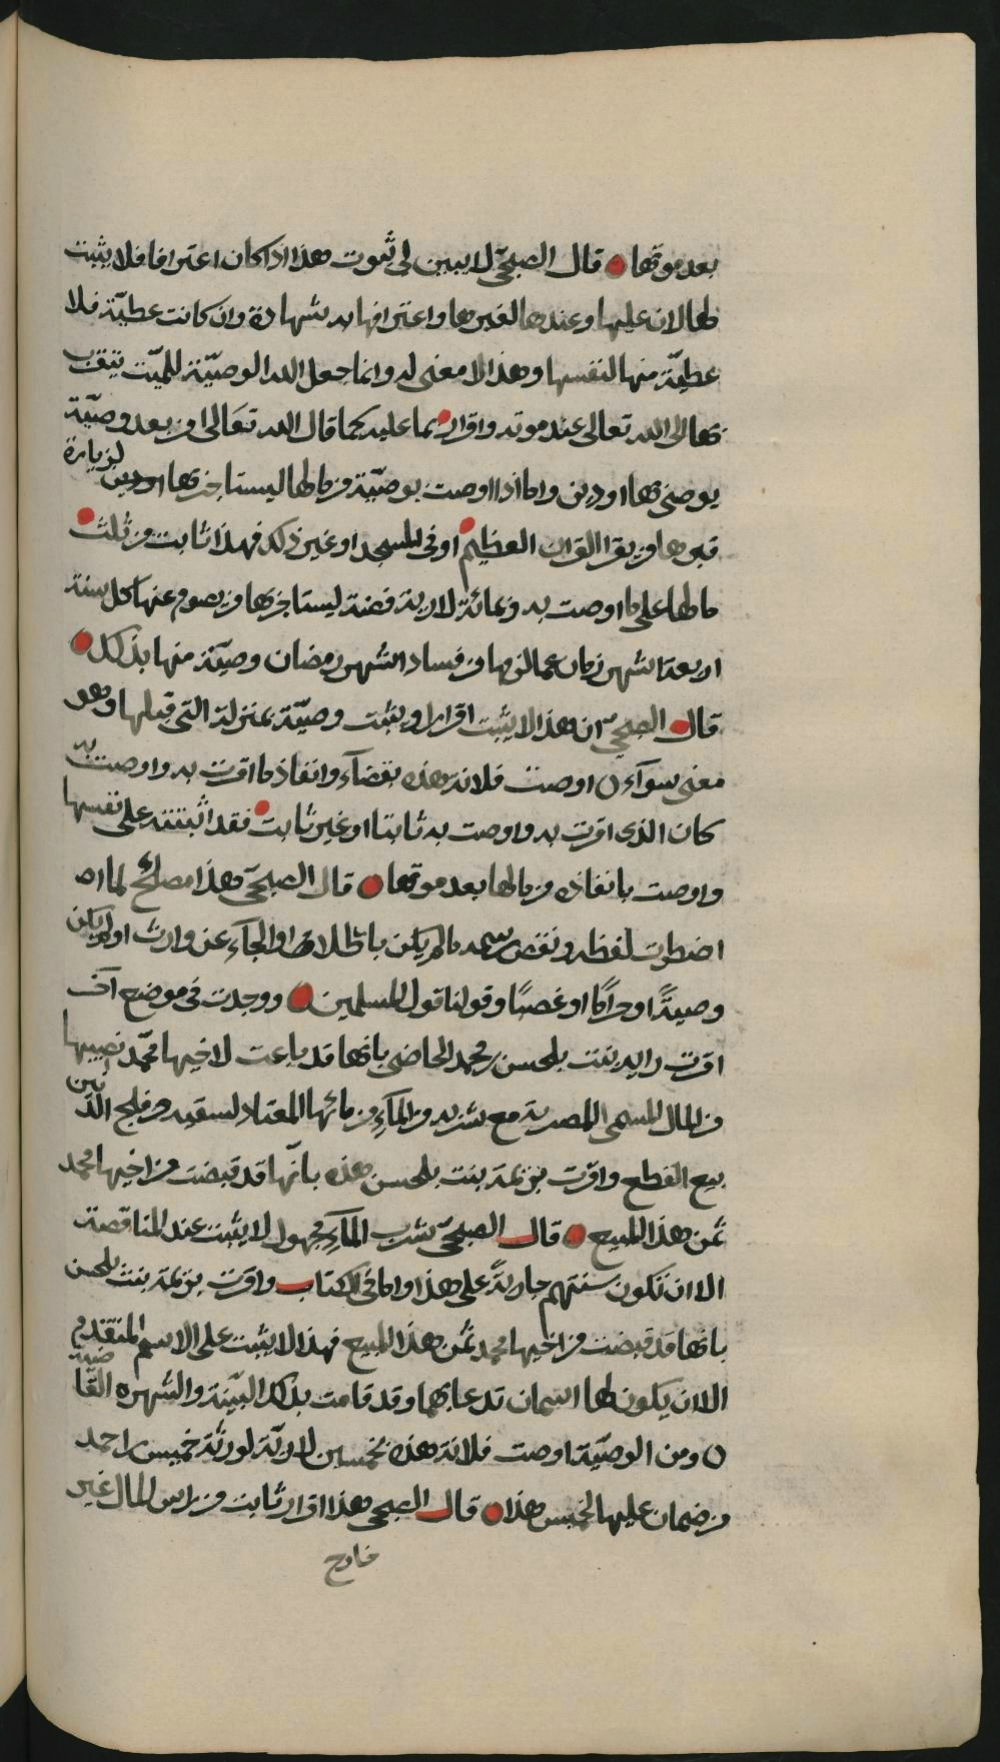 بعد موتها قال الصبحي لا يبين لي ثبوت هذا اذا كان اعترافا فلا يثبت
لها لان عليها وعندها لغيرها واعترافها به شهادة وان كانت عطيّة فلا
عطيّة منها لنفسها وهذا لا معنى له وانما جعل الله الوصيّة للميّت يتقرب
بها الى الله تعالى عند موته واقرار بما عليه كما قال الله تعالى من بعد وصيّة
يوصى بها او دين واما اذا اوصت بوصيّة من مالها ليستاجر بها لزيارة
قبرها من يقرا القران العظيم او في المسجد او غير ذلك فهذا ثابت من ثلث
مالها على ما اوصت به وبمائة لارية فضة ليستاجر بها من يصوم عنها كل سنة
اربعة اشهر زمان عما لزمها من فساد اشهر رمضان وصيّة منها بذلك
قال الصبحيّ ان هذا لا يثبت اقرارا ويثبت وصيّة بمنزلة التي قبلها وهو
معنى سوآء ن اوصت فلانة هذه بقضآء وانفاذ ما اقرت به واوصت به
كان الذي اقرت به واوصت به ثابتا او غير ثابت فقد اثبتته على نفسها
واوصت بانفاذه من مالها بعد موتها قال الصبحيّ هذا مصالح لما اص
اضطرت لفظه ونقص رسمه ما لم يكن باطلا او الجآء عن وارث او لم يكن
وصيةً او حرامًا او غصبًا وقولنا قول المسلمين ووجدت في موضع آخ
اقرت رايه بنت بلحسن محمد الحاضي بانها قد باعت لاخيها محمّد نصيبها
من المال المسمى المصرية مع شربه من المآء من مائها المعتاد لسقيه من فلج
بيع القطع واقرّت بنت بلحسن هذه بانّها قد قبضت من اخيها محمد
ثمن هذا المبيع قال الصبحيّ شرب المآء مجهول لا يثبت عند المناقضة
الا ان تكون سنتهم جارية على هذا واما في الكتاب واقرت بنت بلحسن
بانها قد قبضت من اخيها محمد ثمن هذا المبيع فهذا لا يثبت على الاسم المتقدم
الا ان يكون لها اسمان تدعا بهما وقد قامت بذلك البيّنة والشهره القاضية
ن ومن الوصيّة اوصت فلانة هذه بخمسين لاريّة لورثة خميس احمد
من ضمان عليها لخميس هذا قال الصبحي هذا اقرار ثابت من راس المال غير
خارج